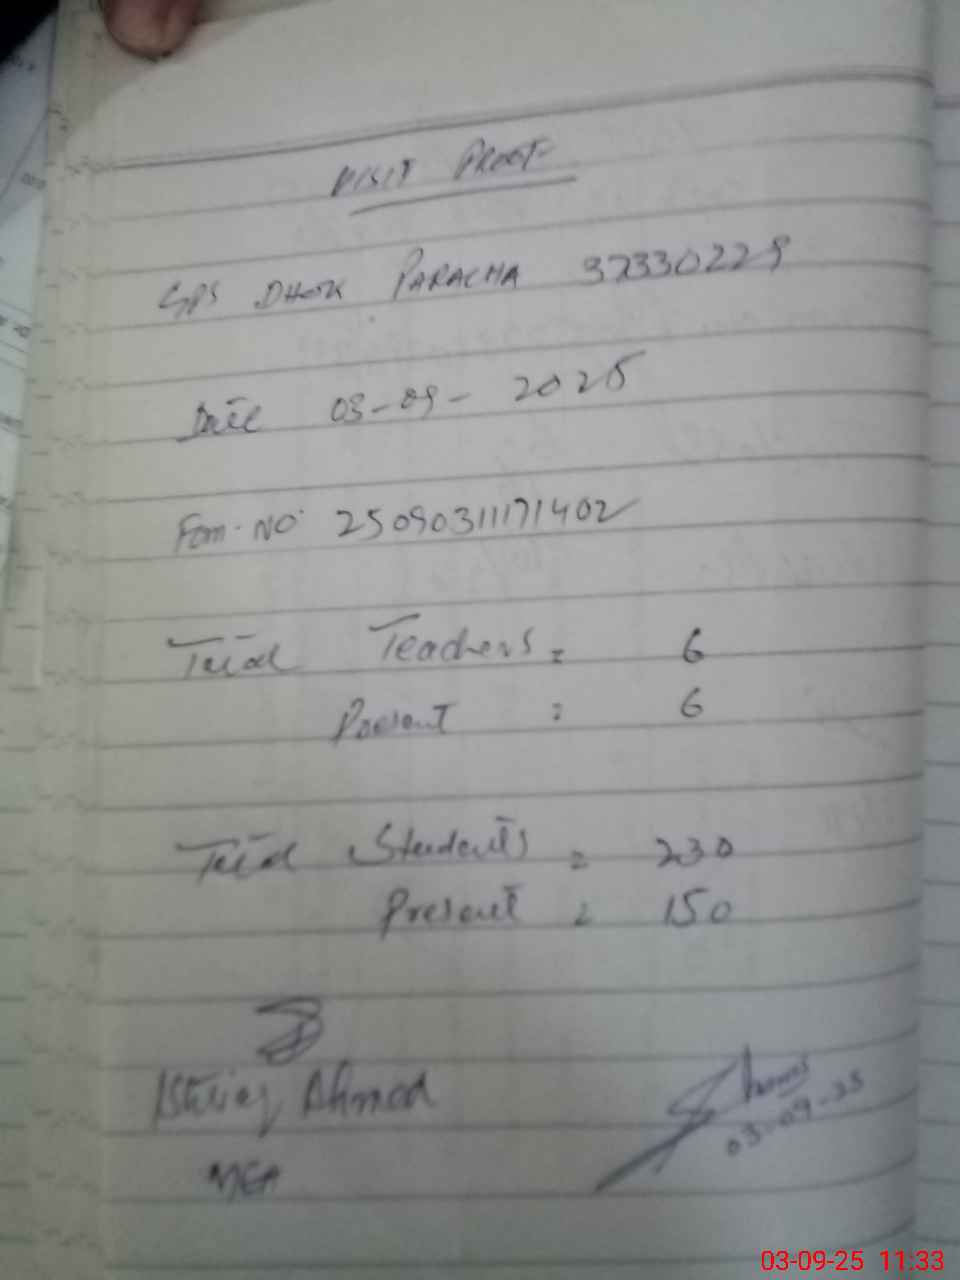 VISIT PROOF
GPS DHOK PARACHA 37330229
Date 03-09-2025
Fom. NO. 25090311171402
Total Teachers = 6
Present = 6
Total Students = 230
Present = 150
Ishtiaq Ahmed
MEA
03-09-25
03-09-25 11:33